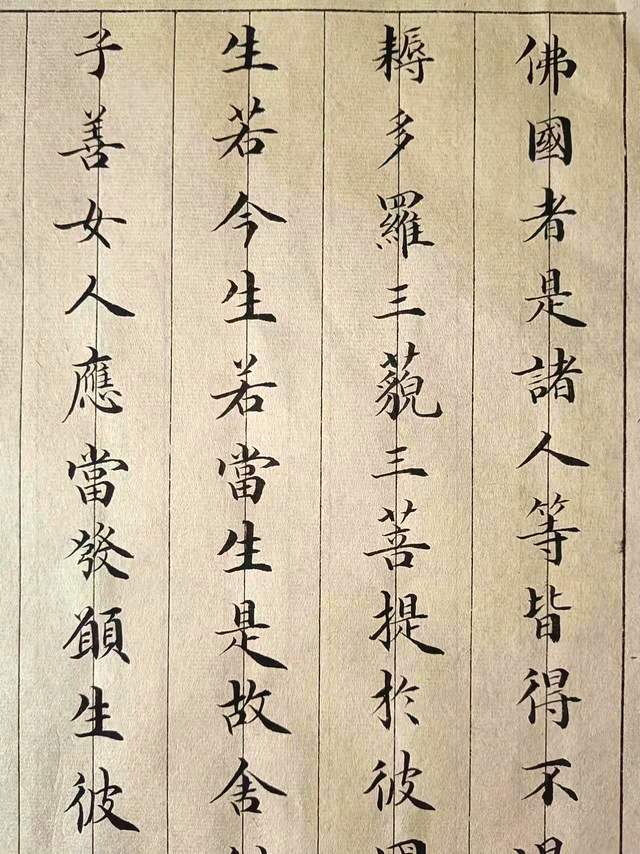 佛國者是諸人等皆得不
耨多羅三藐三菩提於彼
生若今生若當生是故舍
子善女人應當發願生彼